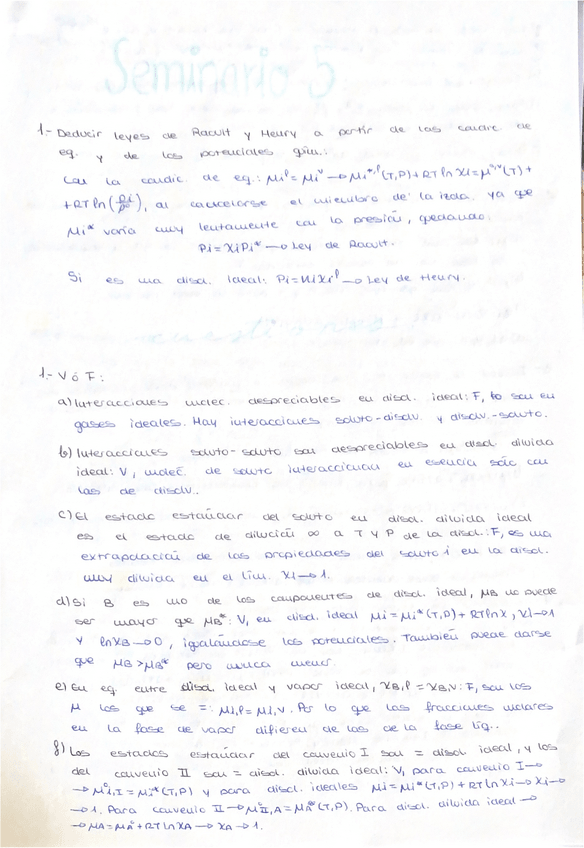 Seminario 5
1.- Deducir leyes de Raoult y Henry a partir de las condic de
eq. y de los potenciales quím.:
Con la condic. de eq.: μi^l = μi^v → μi^{*,l}(T,P) + RT ln Xi = μ^{o,v}(T) +
+ RT ln (Pi/P°), al cancelarse el miembro de la izda. ya que
μi* varía muy lentamente con la presión, quedando:
Pi = Xi Pi* → Ley de Raoult.
Si es una disol. ideal: Pi = Ki Xi^l → Ley de Henry.
1.- V ó F:
a) Interacciones molec. despreciables en disol. ideal: F, lo son en
gases ideales. Hay interacciones soluto-disolv. y disolv.-soluto.
b) Interacciones soluto-soluto son despreciables en disol diluida
ideal: V, molec. de soluto interaccionan en esencia sólo con
las de disolv..
c) El estado estándar del soluto en disol. diluida ideal
es el estado de dilución ∞ a T y P de la disol.: F, es una
extrapolación de las propiedades del soluto i en la disol.
muy diluida en el lím. Xi → 1.
d) Si B es uno de los componentes de disol. ideal, μB no puede
ser mayor que μB*: V, en disol. ideal μi = μi*(T,P) + RT ln x, Xi → 1
y ln XB → 0, igualándose los potenciales. También puede darse
que μB > μB* pero nunca menor.
e) En eq. entre disol. ideal y vapor ideal, XB,l = XB,v: F, son los
μ los que se =: μi,l = μi,v. Por lo que las fracciones molares
en la fase de vapor difieren de las de la fase líq..
f) Los estados estándar del convenio I son = disol ideal, y los
del convenio II son = disol. diluida ideal: V, para convenio I →
→ μ°i,I = μi*(T,P) y para disol. ideales μi = μi*(T,P) + RT ln Xi → Xi →
→ 1. Para convenio II → μ°II,A = μA*(T,P). Para disol. diluida ideal →
→ μA = μA° + RT ln XA → XA → 1.